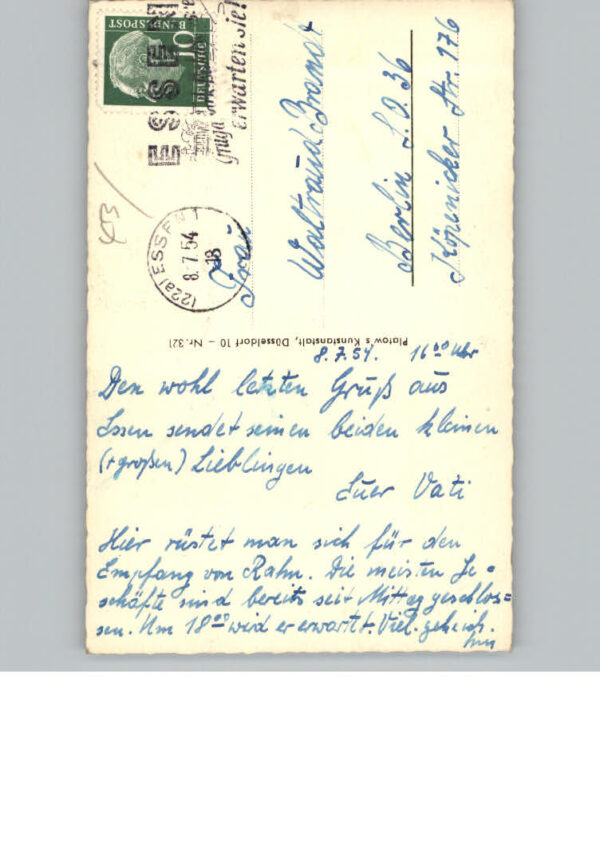 10
DEUTSCHE
BUNDESPOST
ESSEN
Gruga
erwarten Sie!
(22a) ESSEN 1
8.7.54
18
Frau
Waltraud Brandt
Berlin S.O. 36
Köpenicker Str. 176
Platow's Kunstanstalt, Düsseldorf 10 – Nr. 321
8.7.54. 16⁰⁰ Uhr
Den wohl letzten Gruß aus
Essen sendet seinen beiden kleinen
(+ großen) Lieblingen
Euer Vati
Hier rüstet man sich für den
Empfang von Rahn. Die meisten Ge-
schäfte sind bereits seit Mittag geschlos=
sen. Um 18⁰⁰ wird er erwartet. Viel. geh ich
hin